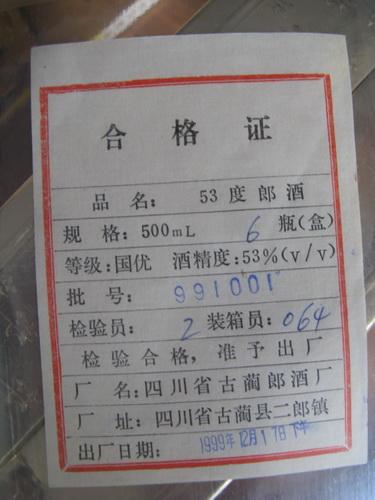 合格证
品名：53度郎酒
规格：500mL 6瓶(盒)
等级：国优 酒精度：53%(v/v)
批号：991001
检验员：2 装箱员：064
检验合格，准予出厂
厂名：四川省古蔺郎酒厂
厂址：四川省古蔺县二郎镇
出厂日期：1999年12月17日下午